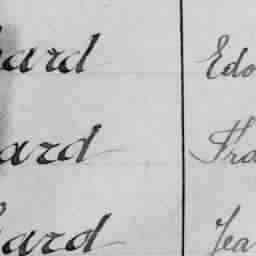 ard Edo
ard Fra
ard Jea